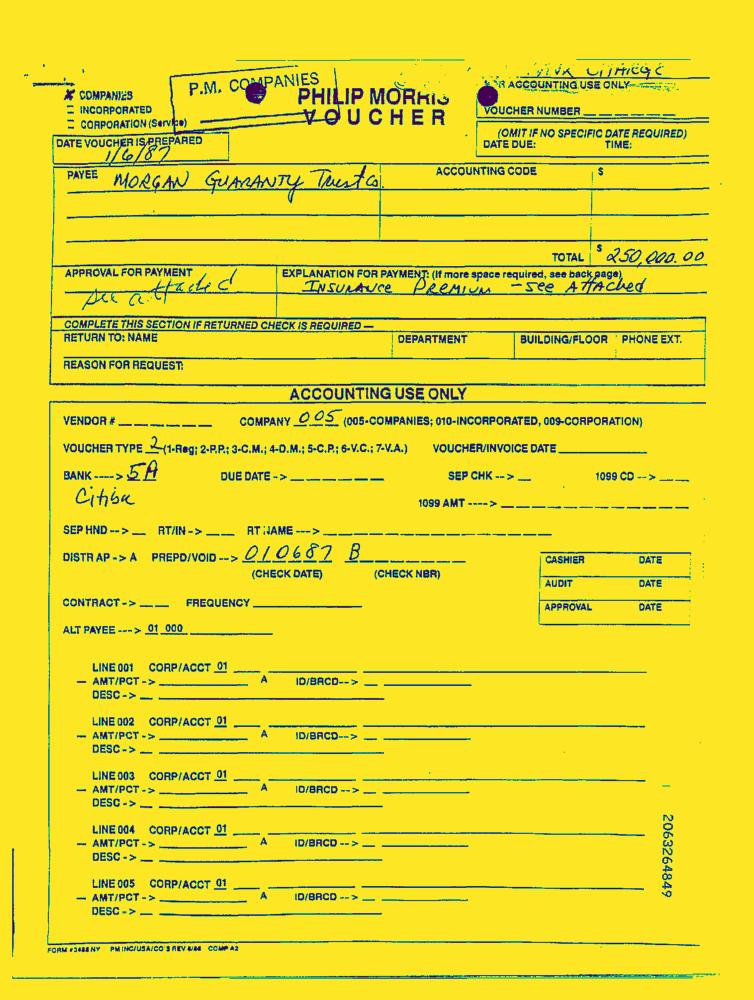 P.M. COMPANIES
COMPANIES
INCORPORATED
CORPORATION (Service)
PHILIP MORRIS
VOUCHER
ACCOUNTING USE ONLY
VOUCHER NUMBER
(OMIT IF NO SPECIFIC DATE REQUIRED)
DATE DUE: TIME:
DATE VOUCHER IS PREPARED
1/6/87
PAYEE MORGAN GUARANTY Trust Co. ACCOUNTING CODE $
TOTAL $ 250,000.00
APPROVAL FOR PAYMENT EXPLANATION FOR PAYMENT: (If more space required, see back page)
see attached INSURANCE PREMIUM - see ATTAched
COMPLETE THIS SECTION IF RETURNED CHECK IS REQUIRED —
RETURN TO: NAME DEPARTMENT BUILDING/FLOOR PHONE EXT.
REASON FOR REQUEST:
ACCOUNTING USE ONLY
VENDOR # COMPANY 005 (005-COMPANIES; 010-INCORPORATED, 009-CORPORATION)
VOUCHER TYPE 2 (1-Reg; 2-P.P.; 3-C.M.; 4-D.M.; 5-C.P.; 6-V.C.; 7-V.A.) VOUCHER/INVOICE DATE
BANK ----> 5A DUE DATE -> SEP CHK --> 1099 CD -->
Citibk 1099 AMT ---->
SEP HND --> RT/IN -> RT NAME --->
DISTR AP -> A PREPD/VOID --> 010687 B
(CHECK DATE) (CHECK NBR)
CASHIER DATE
AUDIT DATE
APPROVAL DATE
CONTRACT -> FREQUENCY
ALT PAYEE ---> 01 000
LINE 001 CORP/ACCT 01
— AMT/PCT -> A ID/BRCD-->
DESC ->
LINE 002 CORP/ACCT 01
— AMT/PCT -> A ID/BRCD-->
DESC ->
LINE 003 CORP/ACCT 01
— AMT/PCT -> A ID/BRCD-->
DESC ->
LINE 004 CORP/ACCT 01
— AMT/PCT -> A ID/BRCD -->
DESC ->
LINE 005 CORP/ACCT 01
— AMT/PCT -> A ID/BRCD -->
DESC ->
2063264849
FORM #3488 NY PM INC/USA/CO'S REV 6/86 COMP A2